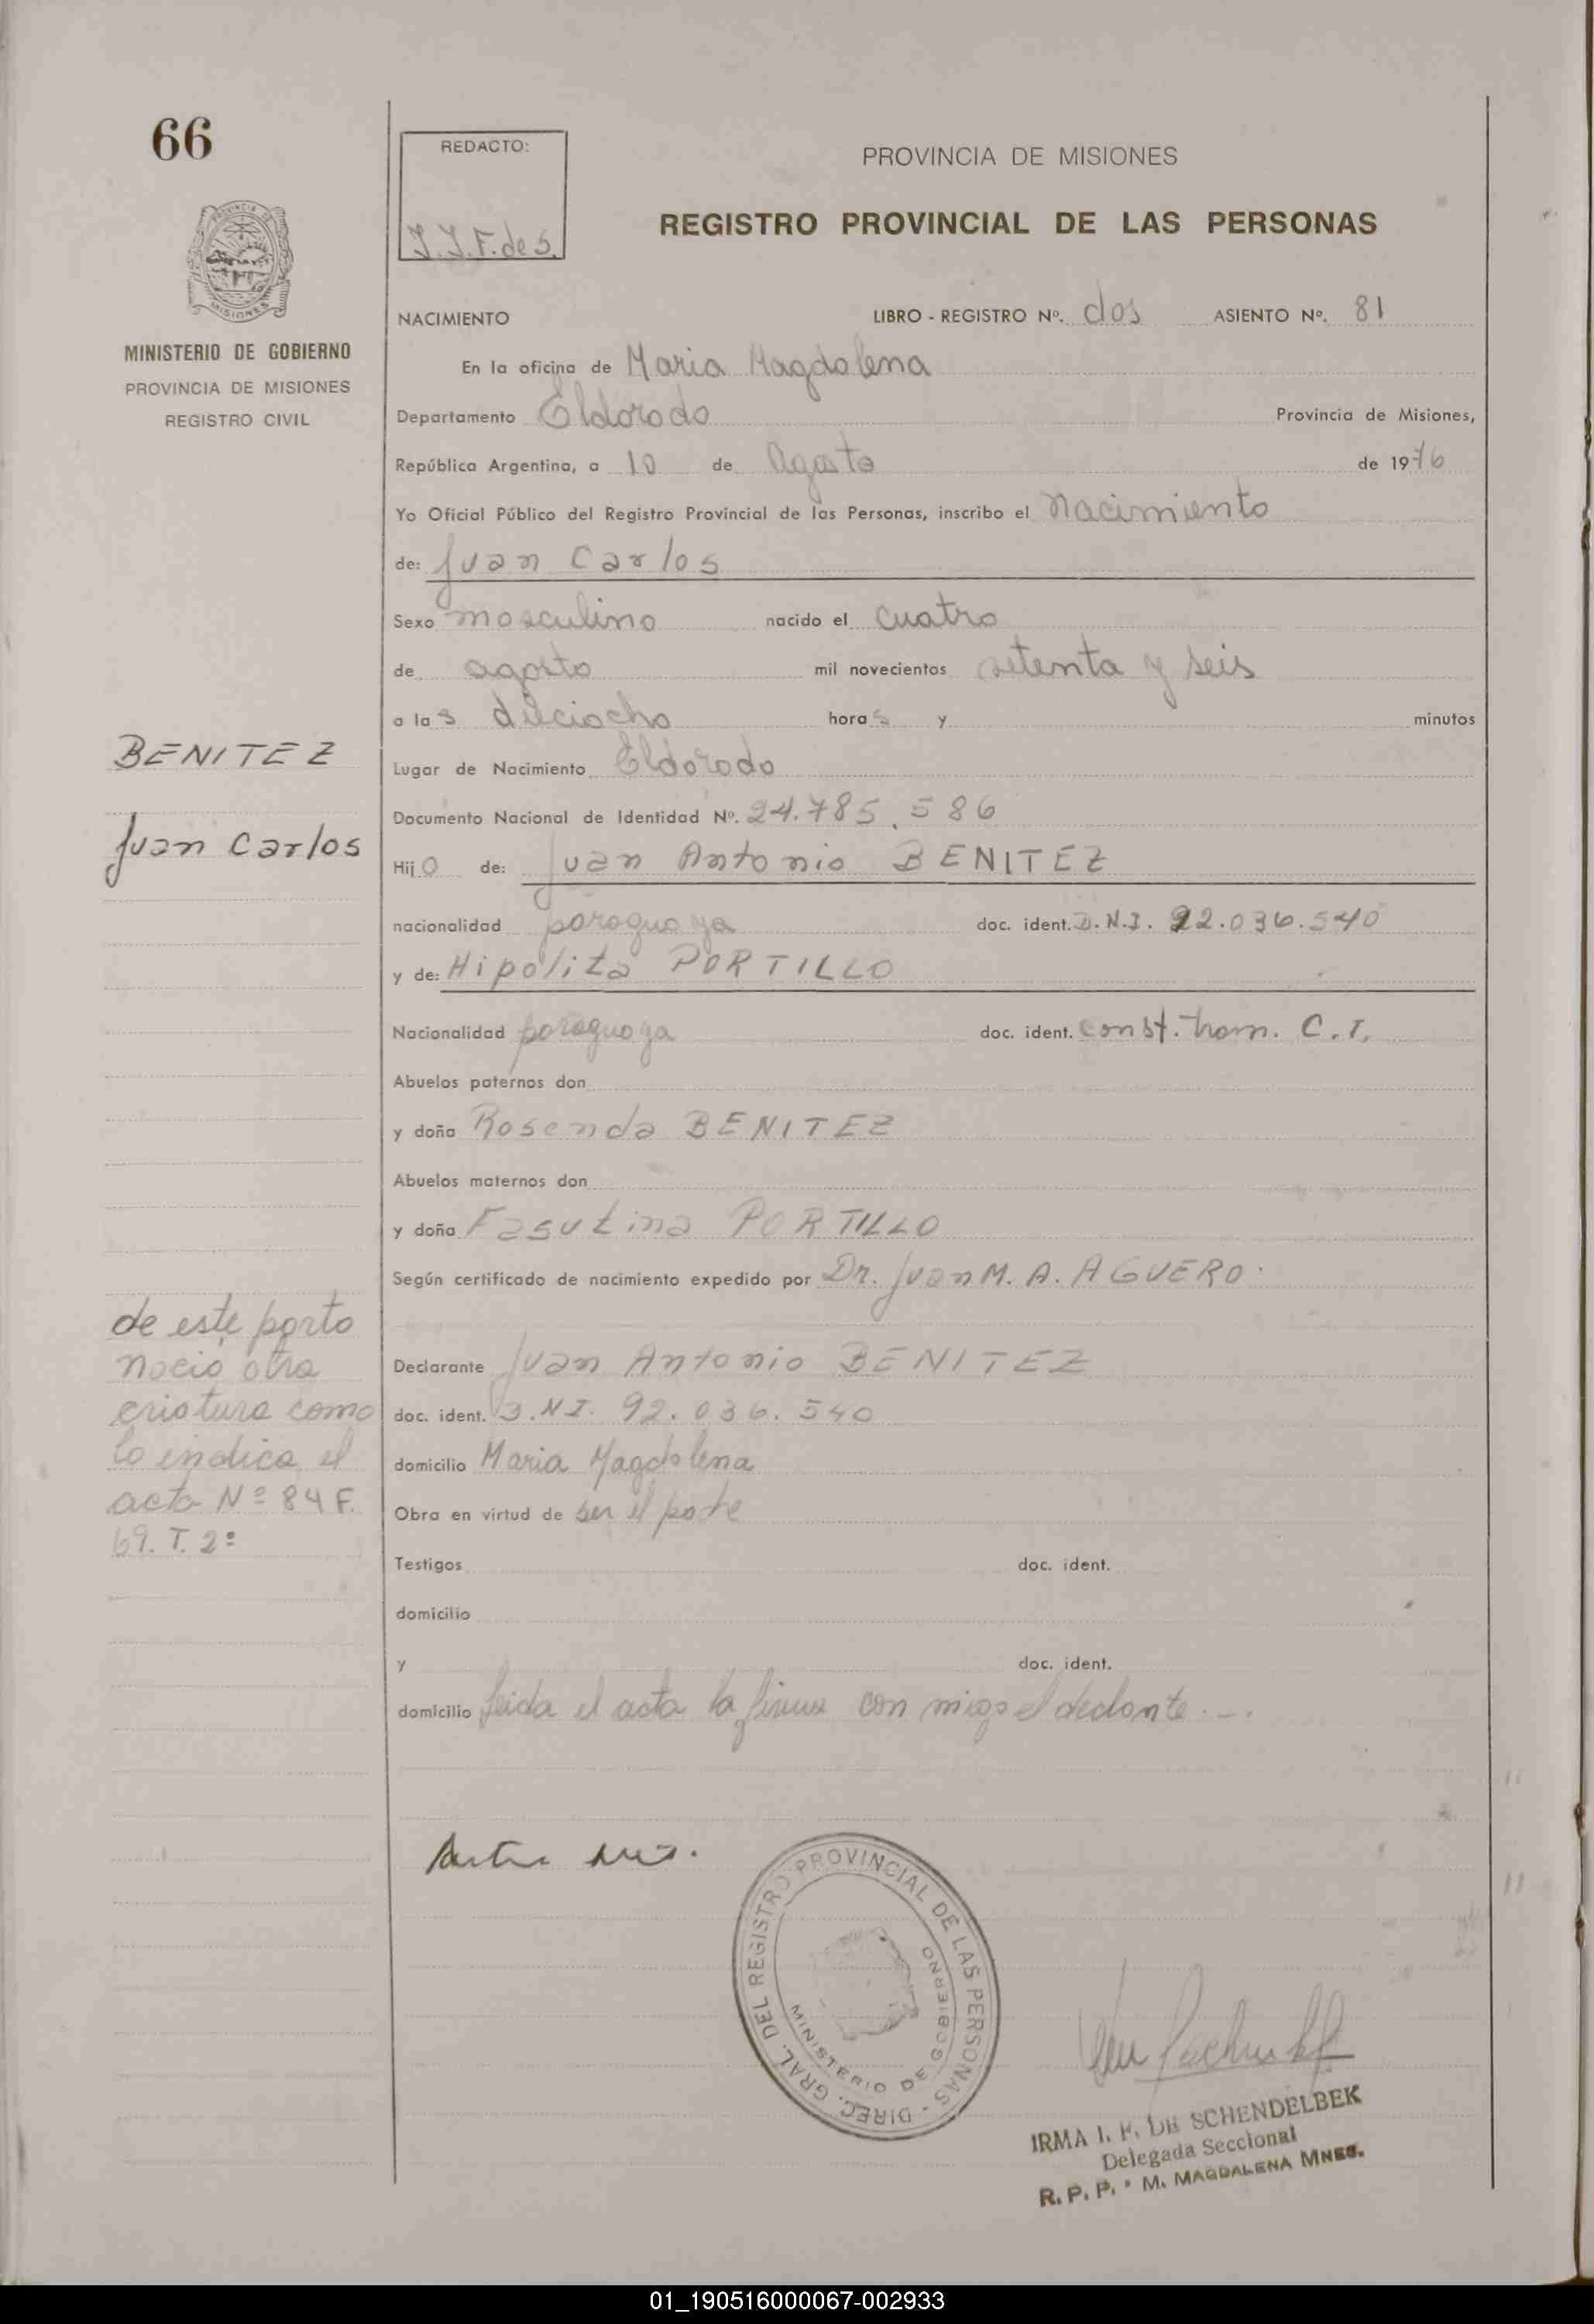 66
REDACTO:
I.I.F. de S.
PROVINCIA DE MISIONES
REGISTRO PROVINCIAL DE LAS PERSONAS
PROVINCIA DE MISIONES
MINISTERIO DE GOBIERNO
PROVINCIA DE MISIONES
REGISTRO CIVIL
NACIMIENTO LIBRO - REGISTRO Nº. dos ASIENTO Nº. 81
En la oficina de Maria Magdalena
Departamento Eldorado Provincia de Misiones,
República Argentina, a 10 de Agosto de 1976
Yo Oficial Público del Registro Provincial de las Personas, inscribo el Nacimiento
de: Juan Carlos
Sexo masculino nacido el cuatro
de agosto mil novecientos setenta y seis
a las dieciocho horas y minutos
BENITEZ
Juan Carlos
Lugar de Nacimiento Eldorado
Documento Nacional de Identidad Nº. 24.785.586
Hijo de: Juan Antonio BENITEZ
nacionalidad paraguaya doc. ident. D.N.I. 92.036.540
y de: Hipolita PORTILLO
Nacionalidad paraguaya doc. ident. const. tram. C.I.
Abuelos paternos don
y doña Rosenda BENITEZ
Abuelos maternos don
y doña Fasutina PORTILLO
Según certificado de nacimiento expedido por Dr. Juan M. A. AGUERO.
de este parto
nació otra
criatura como
lo indica el
acta Nº 84 F.
69. T. 2º
Declarante Juan Antonio BENITEZ
doc. ident. D.NI. 92.036.540
domicilio Maria Magdalena
Obra en virtud de ser el padre
Testigos doc. ident.
domicilio
y doc. ident.
domicilio leida el acta la firma con migo el declante. -.
DIREC. GRAL. DEL REGISTRO PROVINCIAL DE LAS PERSONAS -
MINISTERIO DE GOBIERNO
IRMA I. F. DE SCHENDELBEK
Delegada Seccional
R. P. P. - M. MAGDALENA MNES.
01_190516000067-002933